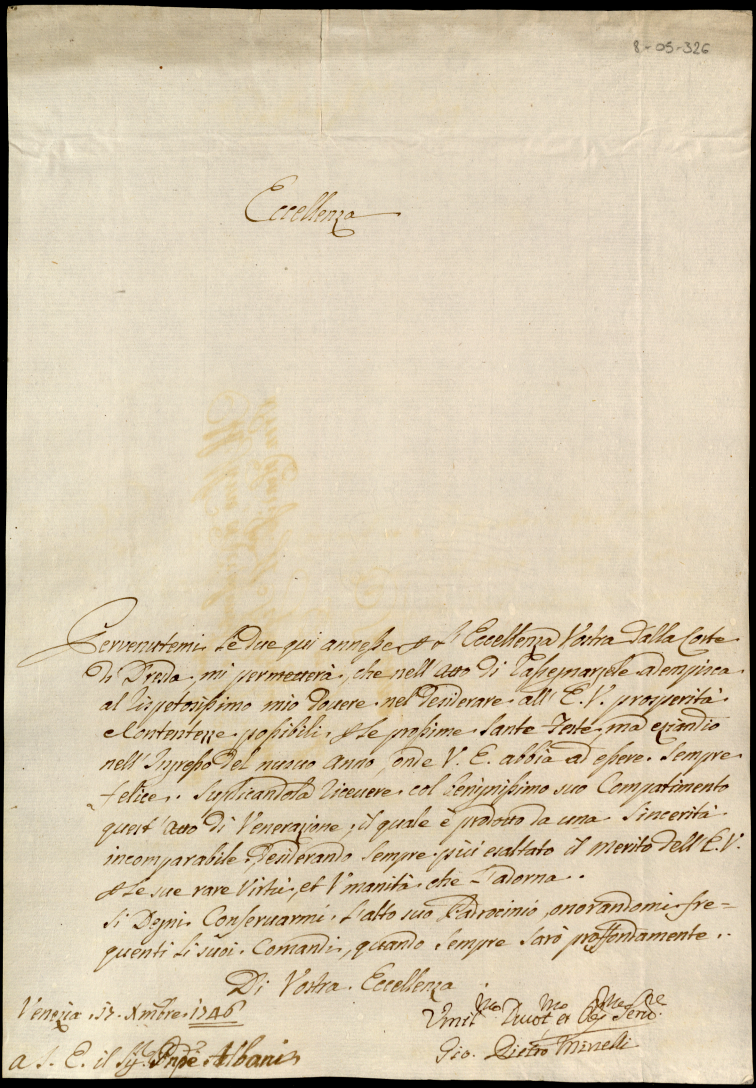 8-05-326
Eccellenza
Pervenutemi le due qui annesse p l'Eccellenza Vostra dalla Corte
di Dresda, mi permetterà, che nell'Atto di rassegnarzele adempisca
al rispetosissimo mio dovere nel desiderare all'E.V. prosperità
e Contentezze possibili p le prossime Sante Feste, ma eziandio
nell'Ingresso del nuovo Anno, onde V. E. abbia ad essere sempre
felice. Suplicandola ricevere col benignissimo suo Compatimento
quest'Atto di Venerazione, il quale è prodotto da una sincerità
incomparabile, desiderando sempre più esaltato il merito dell'E.V.
p le sue rare Virtù, et Umanità che l'adorna.
Si Degni Conservarmi l'alto suo Padrocinio, onorandomi fre=
quenti li suoi Comandi, quando sempre sarò proffondamente.
Di Vostra Eccellenza
Venezia 17 Xmbre 1746
Umil.mo Divot.mo et Obb.mo Serv.re
a S. E. il Sig. Pnpe Albani
Gio. Pietro Minelli